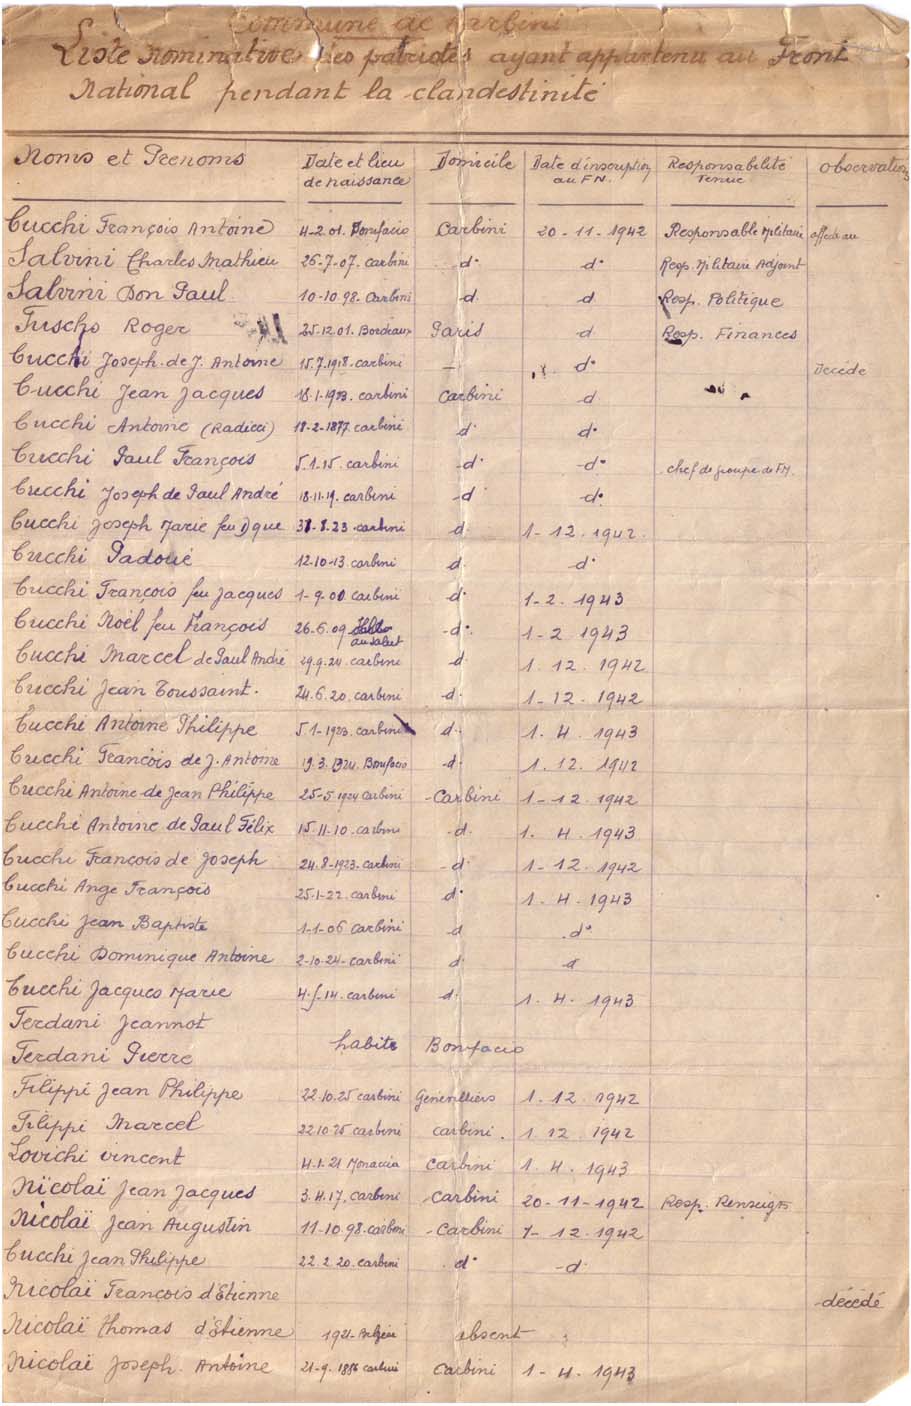 Commune de Carbini
Liste Nominative des patriotes ayant appartenu au Front
National pendant la clandestinité
Noms et Prenoms Date et lieu de naissance Domicile Date d'inscription au F.N. Responsabilité tenue observations
Cucchi François Antoine 4-2.01. Bonifacio Carbini 20-11-1942 Responsable Militaire
Salvini Charles Mathieu 26-7-07. carbini -d° d° Resp. Militaire Adjoint
Salvini Don Paul 10-10.98. Carbini -d. d Resp. Politique
Roger 25.12.01. Bordeaux Paris -d Resp. Finances
Cucchi Joseph. de J. Antoine 15.7.1918. carbini — d° Décédé
Cucchi Jean Jacques 18.1-1923. carbini Carbini -d
Cucchi Antoine (Radicci) 18-2-1877. carbini d° d°
Cucchi Paul François 5.1-15. carbini -d° -d° chef de groupe de FM.
Cucchi Joseph de Paul André 18.11.19. carbini -d d°
Cucchi Joseph Marie feu Dque 31.8.23. carbini d 1-12.1942.
Cucchi Padoué 12.10-13. carbini d. d°
Cucchi François feu Jacques 1-9.00 carbini d° 1-2.1943
Cucchi Noël feu François 26.6.09 au salut -d°. 1-2 1943
Cucchi Marcel de Paul André 29.9.24 carbini d 1.12.1942
Cucchi Jean Toussaint. 24.6.20. carbini d. 1-12.1942
Cucchi Antoine Philippe 5.1-1923. carbini d. 1.4.1943
Cucchi François de J. Antoine 19.3.1924. Bonifacio -d. 1.12.1942
Cucchi Antoine de Jean Philippe 25-5 1924 Carbini -Carbini 1-12.1942
Cucchi Antoine de Paul Félix 15.11-10. carbini -d. 1.4.1943
Cucchi François de Joseph 24.8-1923. carbini -d 1-12.1942
Cucchi Ange François 25.1-22. carbini d° 1.4.1943
Cucchi Jean Baptiste 1-1-06 carbini -d .d°
Cucchi Dominique Antoine 2-10-24- carbini d d
Cucchi Jacques Marie 14. carbini d. 1.4.1943
Terdani Jeannot
Terdani Pierre habite Bonifacio
Filippi Jean Philippe 22.10.25 carbini Genevilliers 1.12.1942
Filippi Marcel 22.10 25 carbini carbini. 1.12.1942
Lovichi vincent 4.1.21 Monaccia Carbini 1.4.1943
Nicolaï Jean Jacques 3.4.17. Carbini -Carbini 20-11-1942 Resp. Renseigts
Nicolaï Jean Augustin 11-10.98-carbini -Carbini 1-12.1942
Cucchi Jean Philippe 22.2.20. carbini d° -d.
Nicolaï François d'Etienne -décédé
Nicolaï Thomas d'Etienne 1921- absent
Nicolaï Joseph. Antoine 21-9.1886 carbini Carbini 1-4.1943